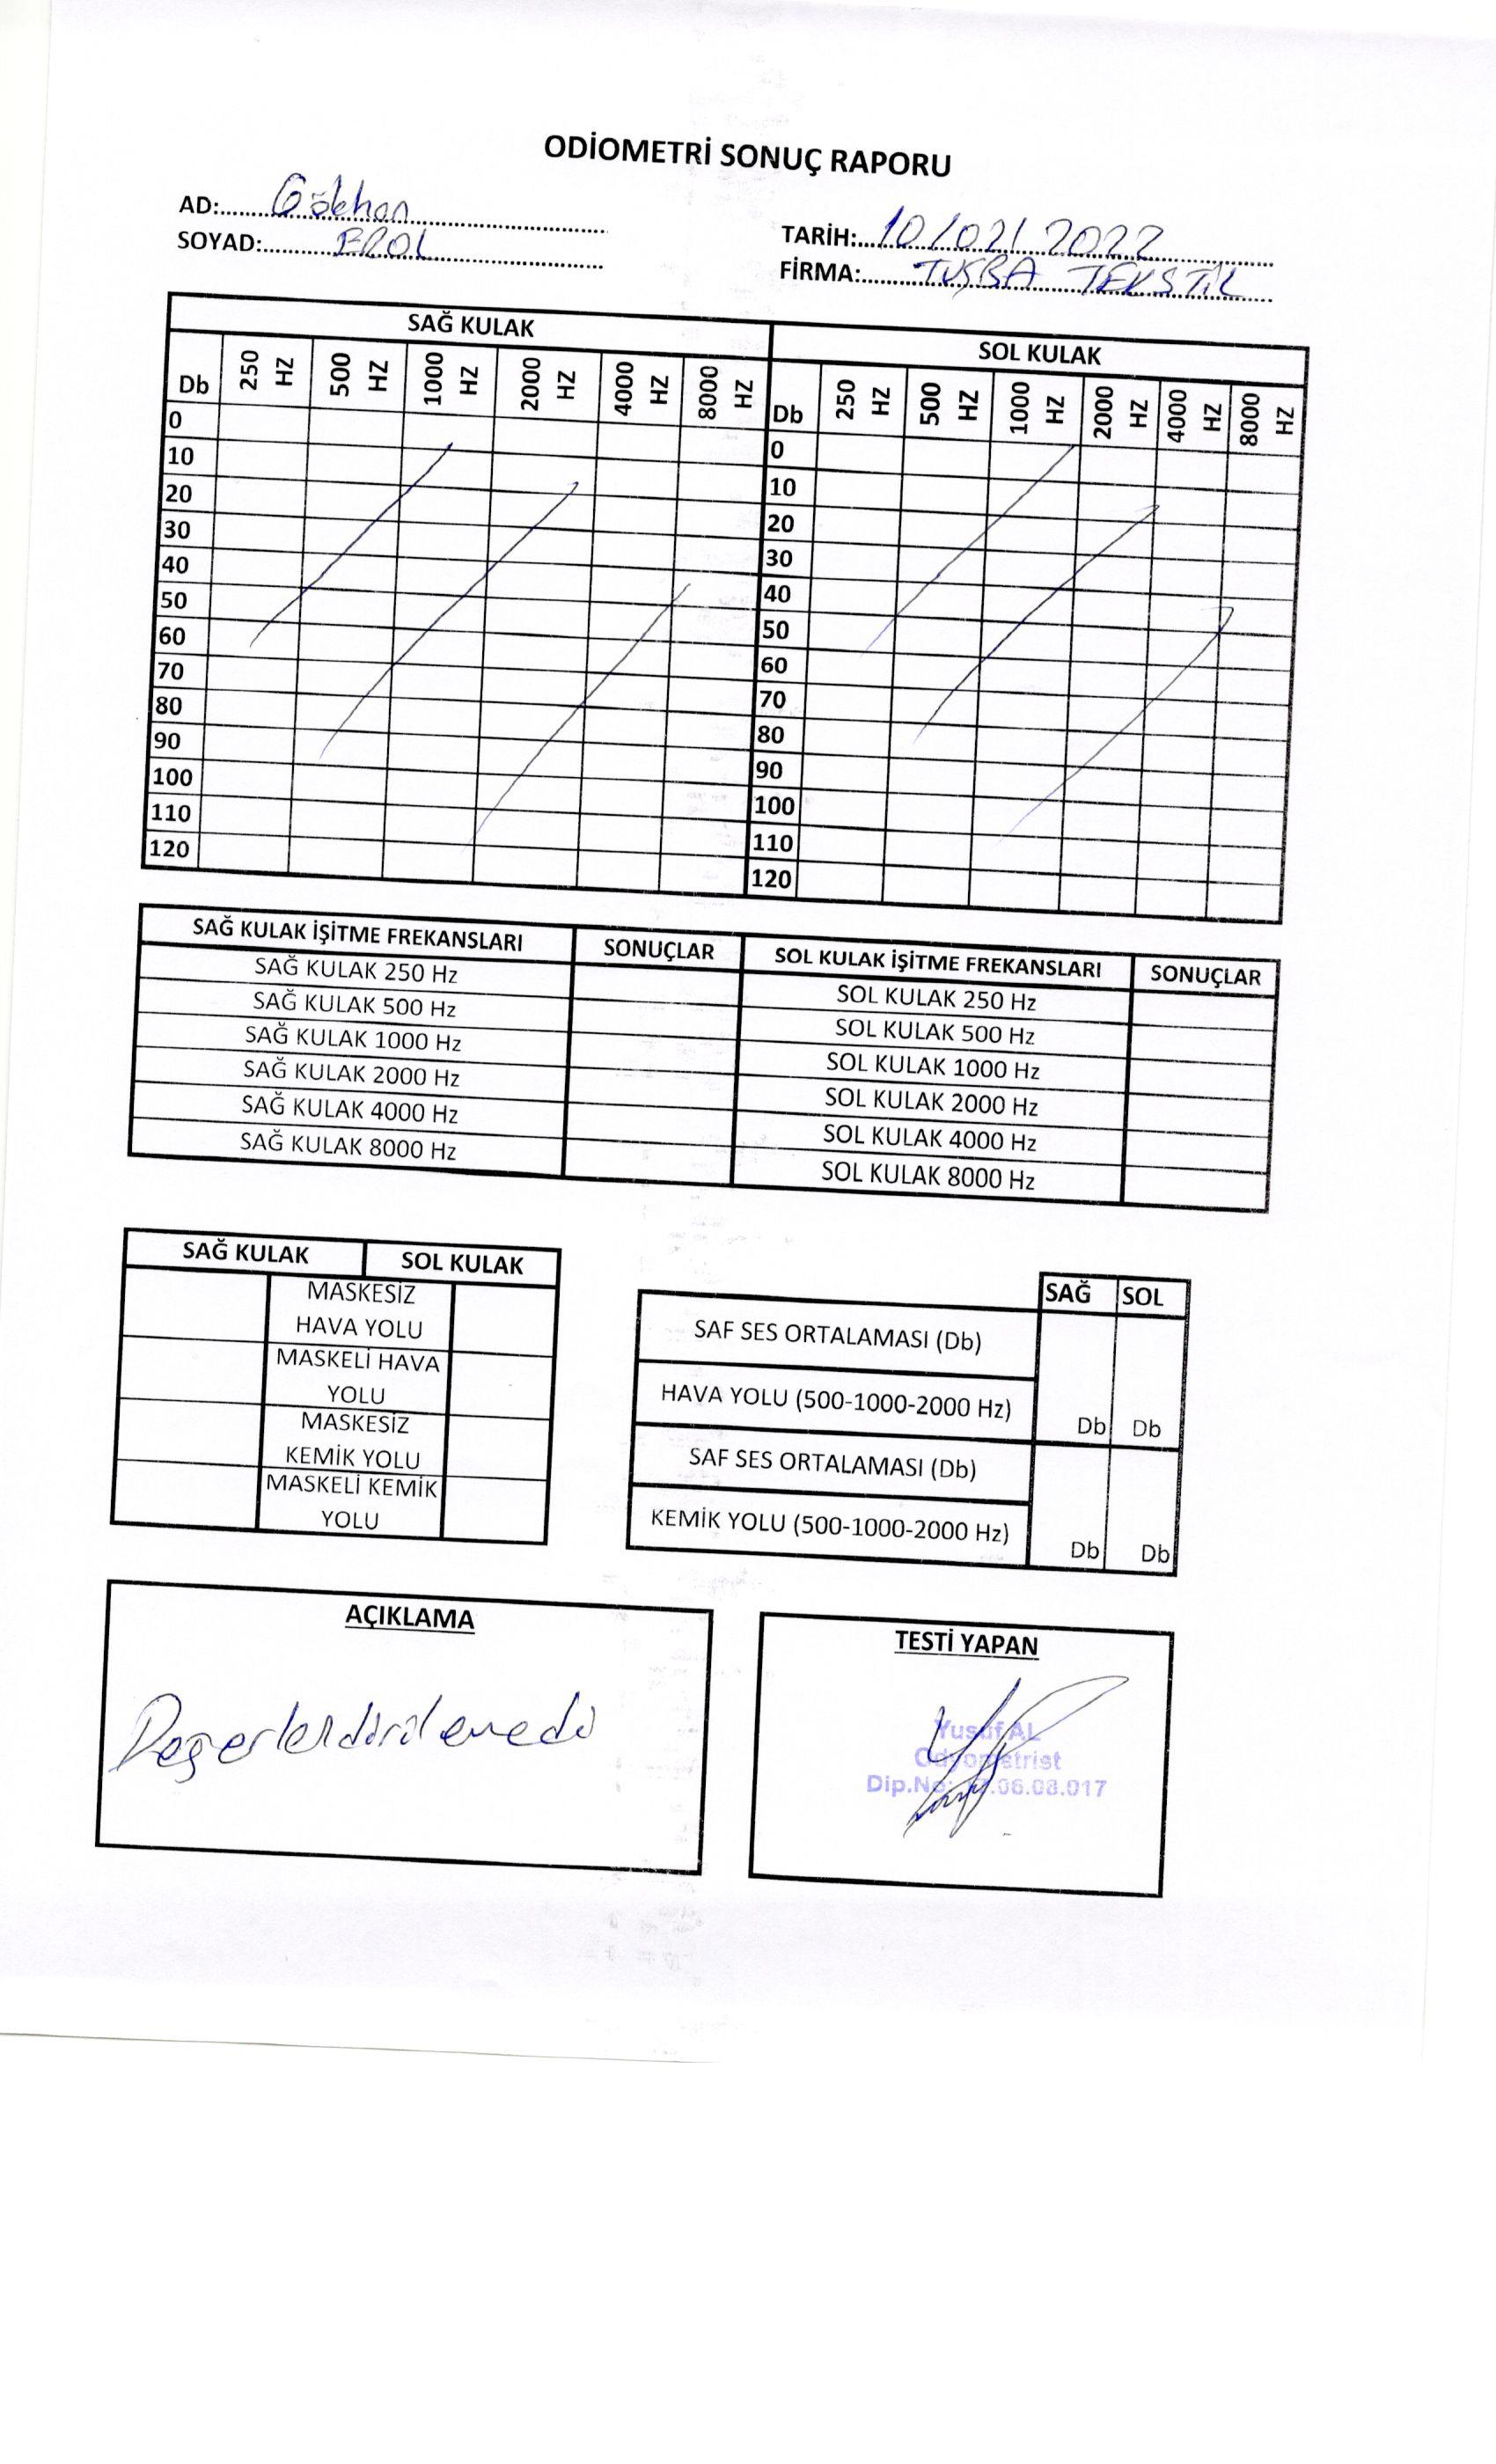 ODİOMETRİ SONUÇ RAPORU
AD: Gökhan
SOYAD: EROL
TARİH: 10/02/2022
FİRMA: TUŞBA TEKSTİL
SAĞ KULAK SOL KULAK
Db 250 HZ 500 HZ 1000 HZ 2000 HZ 4000 HZ 8000 HZ Db 250 HZ 500 HZ 1000 HZ 2000 HZ 4000 HZ 8000 HZ
0 0
10 10
20 20
30 30
40 40
50 50
60 60
70 70
80 80
90 90
100 100
110 110
120 120
SAĞ KULAK İŞİTME FREKANSLARI SONUÇLAR SOL KULAK İŞİTME FREKANSLARI SONUÇLAR
SAĞ KULAK 250 Hz SOL KULAK 250 Hz
SAĞ KULAK 500 Hz SOL KULAK 500 Hz
SAĞ KULAK 1000 Hz SOL KULAK 1000 Hz
SAĞ KULAK 2000 Hz SOL KULAK 2000 Hz
SAĞ KULAK 4000 Hz SOL KULAK 4000 Hz
SAĞ KULAK 8000 Hz SOL KULAK 8000 Hz
SAĞ KULAK SOL KULAK
MASKESİZ
HAVA YOLU
MASKELİ HAVA
YOLU
MASKESİZ
KEMİK YOLU
MASKELİ KEMİK
YOLU
SAĞ SOL
SAF SES ORTALAMASI (Db)
HAVA YOLU (500-1000-2000 Hz) Db Db
SAF SES ORTALAMASI (Db)
KEMİK YOLU (500-1000-2000 Hz) Db Db
AÇIKLAMA
Değerlendirilemedi
TESTİ YAPAN
Yusuf AL
Odyometrist
Dip.No: .06.08.017